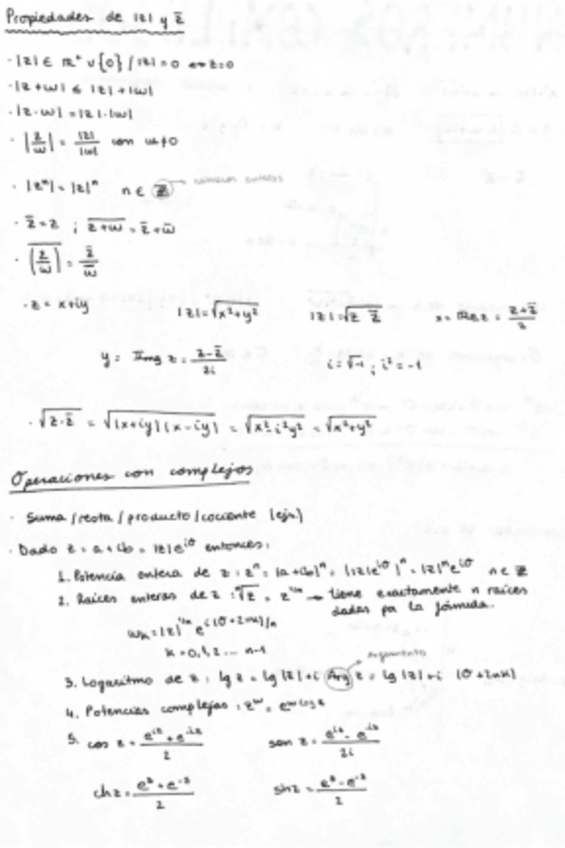 Propiedades de |z| y z̄
· |z| ∈ ℝ⁺ ∪ {0} / |z| = 0 ⇔ z = 0
· |z + w| ≤ |z| + |w|
· |z · w| = |z| · |w|
· |z/w| = |z|/|w| con w ≠ 0
· |zⁿ| = |z|ⁿ n ∈ ℤ → números enteros
· z̄ = z ; \overline{z + w} = z̄ + w̄
· \overline{(z/w)} = z̄/w̄
· z = x + iy |z| = √(x² + y²) |z| = √(z z̄) x = Re z = (z + z̄)/2
y = Img z = (z - z̄)/2i i = √-1 ; i² = -1
· √(z · z̄) = √((x + iy)(x - iy)) = √(x² - i²y²) = √(x² + y²)
Operaciones con complejos
· Suma / resta / producto / cociente (ejs)
· Dado z = a + ib = |z|e^{iθ} entonces:
1. Potencia entera de z : zⁿ = (a + ib)ⁿ = (|z|e^{iθ})ⁿ = |z|ⁿ e^{iθ} n ∈ ℤ
2. Raíces enteras de z : ⁿ√z = z^{1/n} → tiene exactamente n raíces
dadas por la fórmula.
w_k = |z|^{1/n} e^{i(θ + 2πk)/n}
k = 0, 1, 2 ... n-1
Argumento
3. Logaritmo de z : lg z = lg |z| + i Arg z = lg |z| + i (θ + 2πk)
4. Potencias complejas : z^w = e^{w log z}
5. cos z = (e^{iz} + e^{-iz})/2 sen z = (e^{iz} - e^{-iz})/2i
ch z = (e^z + e^{-z})/2 sh z = (e^z - e^{-z})/2